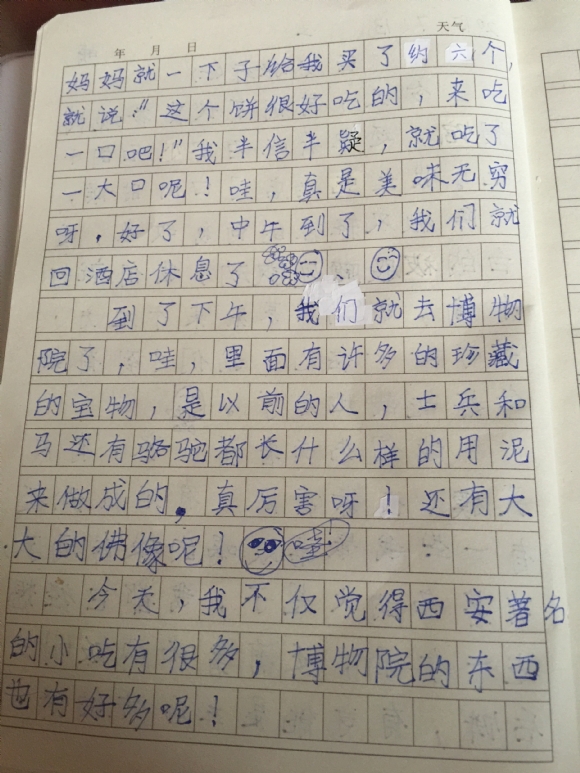 天气
年 月 日
妈妈就一下子给我买了约六个，
就说："这个饼很好吃的，来吃
一口吧！"我半信半疑，就吃了
一大口呢！哇，真是美味无穷
呀，好了，中午到了，我们就
回酒店休息了
到了下午，我们就去博物
院了，哇，里面有许多的珍藏
的宝物，是以前的人，士兵和
马还有骆驼都长什么样的用泥
来做成的，真厉害呀！还有大
大的佛像呢！ 哇！
今天，我不仅觉得西安著名
的小吃有很多，博物院的东西
也有好多呢！